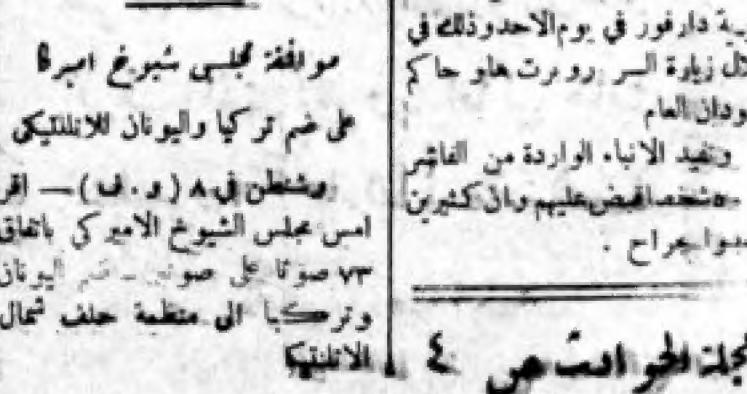 ـية دارفور في يوم الاحد وذلك في
ـلال زيارة السر روبرت هاو حاكم
ـودان العام
وتفيد الانباء الواردة من الفاشر
شخصا قبض عليهم وان كثيرين
ـيبوا بجراح .
مجلة الحوادث ص ٤
موافقة مجلس شيوخ اميركا
على ضم تركيا واليونان للاتلنتيكي
وشنطن في ٨ ( و . ف ) — اقر
امس مجلس الشيوخ الاميركي باتفاق
٧٣ صوتا على صوتين ـ ضم اليونان
وتركيا الى منظمة حلف شمال
الاتلنتيكا